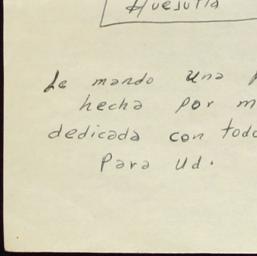 Huejutla
Le mando una
hecha por m
dedicada con todo
Para Ud.